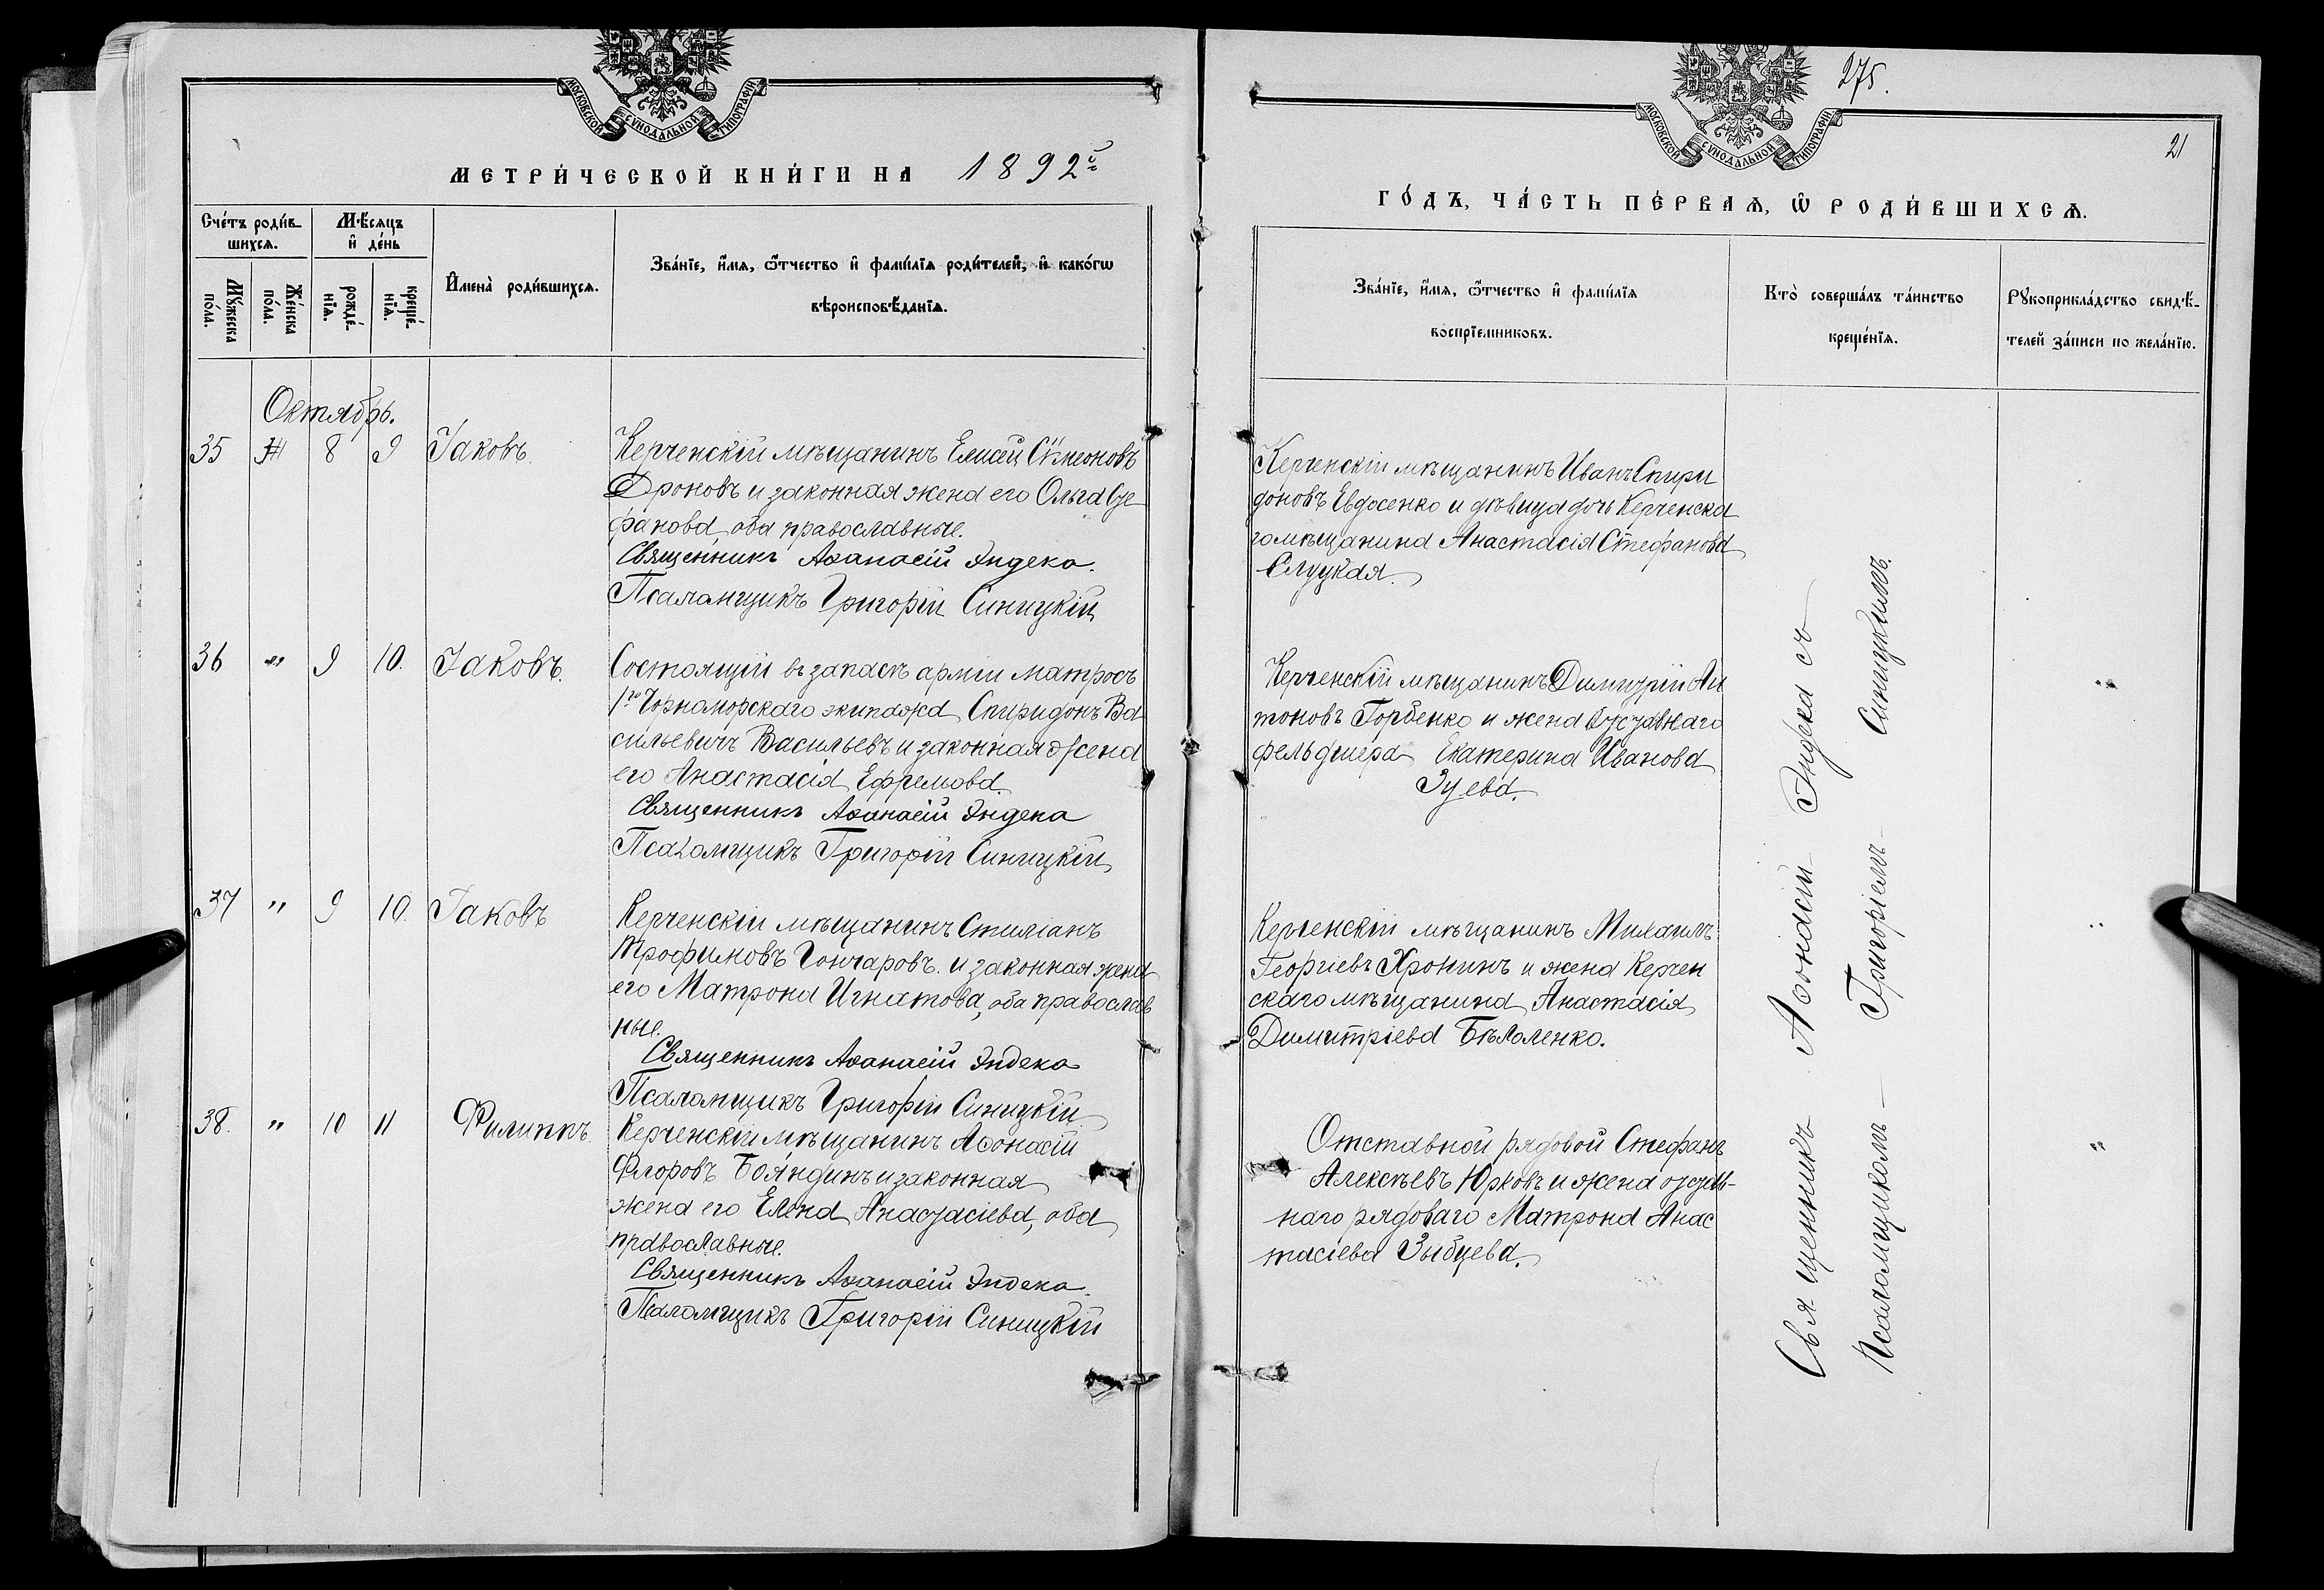 МОСКОВСКОЙ СѴНОДАЛЬНОЙ ТИПОГРАФІИ
МЕТРИ́ЧЕСКОЙ КНИ́ГИ НА 1892й
Сче́тъ роди́в-
шихсѧ.
Мѣ́сѧцъ
и҆ де́нь
Мꙋ́жеска
по́ла.
Же́нска
по́ла.
рожде́-
нїѧ.
креще́-
нїѧ.
И҆мена̀ роди́вшихсѧ.
Зва́нїе, и҆́мѧ, ѻ҆́тчество и҆ фами́лїѧ роди́телей, и҆ како́гѡ
вѣроисповѣ́данїѧ.
Октябрь.
35 8 9 Іаковъ.
Керченскій мѣщанинъ Елисей Сѵмеоновъ
Дроновъ и законная жена его Ольга Сте
фанова, оба православные.
Священникъ Аѳанасій Эндека.
Псаломщикъ Григорій Синицкій
36 „ 9 10. Іаковъ.
Состоящій въ запасѣ арміи матросъ
1го Черноморскаго экипажа Спиридонъ Ва
сильевичъ Васильевъ и законная жена
его Анастасія Ефремова.
Священникъ Аѳанасій Эндека
Псаломщикъ Григорій Синицкій
37 „ 9 10. Іаковъ
Керченскій мѣщанинъ Стиліанъ
Трофимовъ Гончаровъ и законная жена
его Матрона Игнатова, оба православ
ные.
Священникъ Аѳанасій Эндека
Псаломщикъ Григорій Синицкій
38. „ 10 11 Филиппъ.
Керченскій мѣщанинъ Аѳонасій
Флоровъ Бояндинъ и законная
жена его Елена Анастасіева, оба
православные.
Священникъ Аѳанасій Эндека.
Псаломщикъ Григорій Синицкій
275.
21
МОСКОВСКОЙ СѴНОДАЛЬНОЙ ТИПОГРАФІИ
ГО́ДЪ, ЧА́СТЬ ПЕ́РВАѦ, Ѡ҆ РОДИ́ВШИХСѦ.
Зва́нїе, и҆́мѧ, ѻ҆́тчество и҆ фами́лїѧ
воспрїе́мниковъ.
Кто̀ соверша́лъ та́инство
креще́нїѧ.
Рꙋкоприкла́дство свидѣ́-
телей за́писи по жела́нїю.
Керченскій мѣщанинъ Иванъ Спири
доновъ Евдосенко и дѣвица дочь Керченска
го мѣщанина Анастасія Стефанова
Слуцкая.
Керченскій мѣщанинъ Димитрій Ан
тоновъ Горбенко и жена отставнаго
фельдшера Екатерина Иванова
Зуева.
„
Керченскій мѣщанинъ Михаилъ
Георгіевъ Хронинъ и жена Керчен
скаго мѣщанина Анастасія
Димитріева Бѣлоленко.
„
Отставной рядовой Стефанъ
Алексѣевъ Юрковъ и жена отстав-
наго рядоваго Матрона Анас
тасіева Зыбцева.
„
Священникъ Аѳонасій Эндека съ
Псаломщикомъ — Григоріемъ — Синицкимъ.